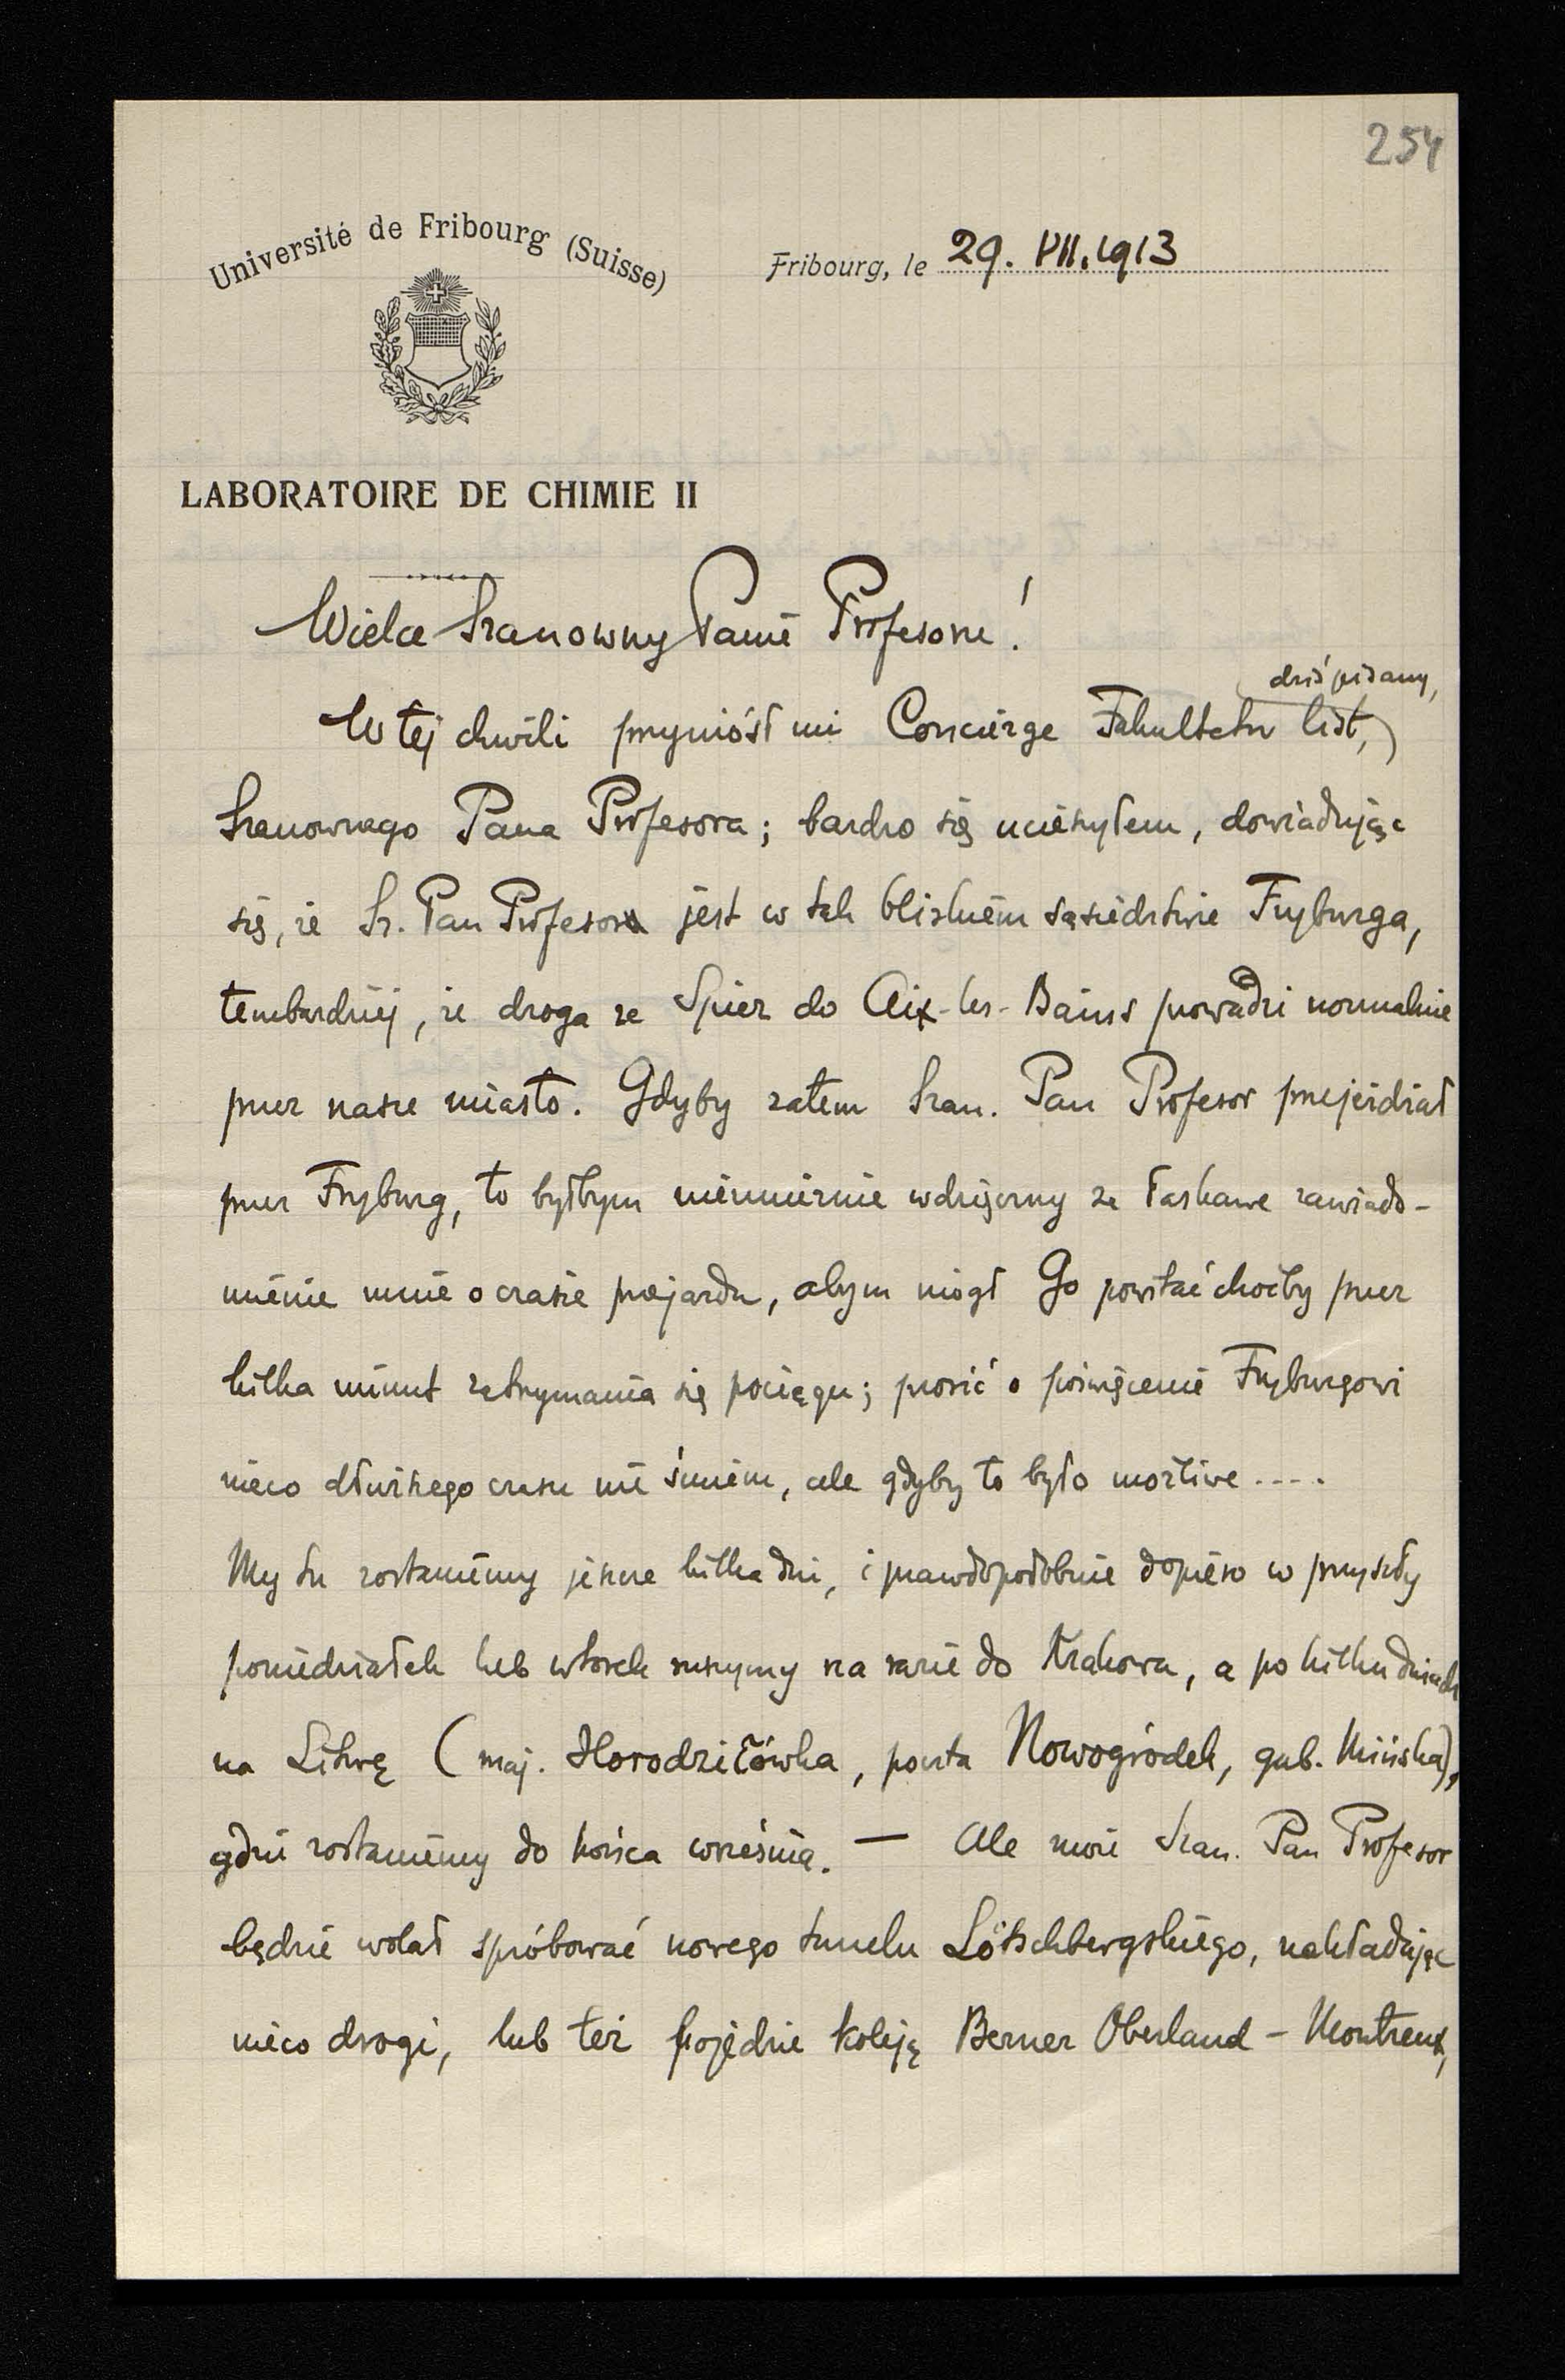 254
Université de Fribourg (Suisse)
Fribourg, le 29. VII. 1913
LABORATOIRE DE CHIMIE II
Wielce Szanowny Panie Profesorze!
dziś pisany,
W tej chwili przyniósł mi Concierge Fakultetu list,
Szanownego Pana Profesora; bardzo się ucieszyłem, dowiadując
się, że Sz. Pan Profesor jest w tak blizkiem sąsiedztwie Fryburga,
tembardziej, że droga ze Spiez do Aix-les-Bains prowadzi normalnie
przez nasze miasto. Gdyby zatem Szan. Pan Profesor przejeżdżał
przez Fryburg, to byłbym niezmiernie wdzięczny za łaskawe zawiado-
mienie mnie o czasie przejazdu, abym mógł Go powitać choćby przez
kilka minut zatrzymania się pociągu; prosić o poświęcenie Fryburgowi
nieco dłuższego czasu nie śmiem, ale gdyby to było możliwe ....
My tu zostaniemy jeszcze kilka dni, i prawdopodobnie dopiero w przyszły
poniedziałek lub wtorek ruszymy na razie do Krakowa, a po kilku dniach
na Litwę (maj. Horodziłówka, poczta Nowogródek, gub. Mińska),
gdzie zostaniemy do końca września. — Ale może Szan. Pan Profesor
będzie wolał spróbować nowego tunelu Lötschbergskiego, nakładając
nieco drogi, lub też pojedzie koleją Berner Oberland - Montreux,